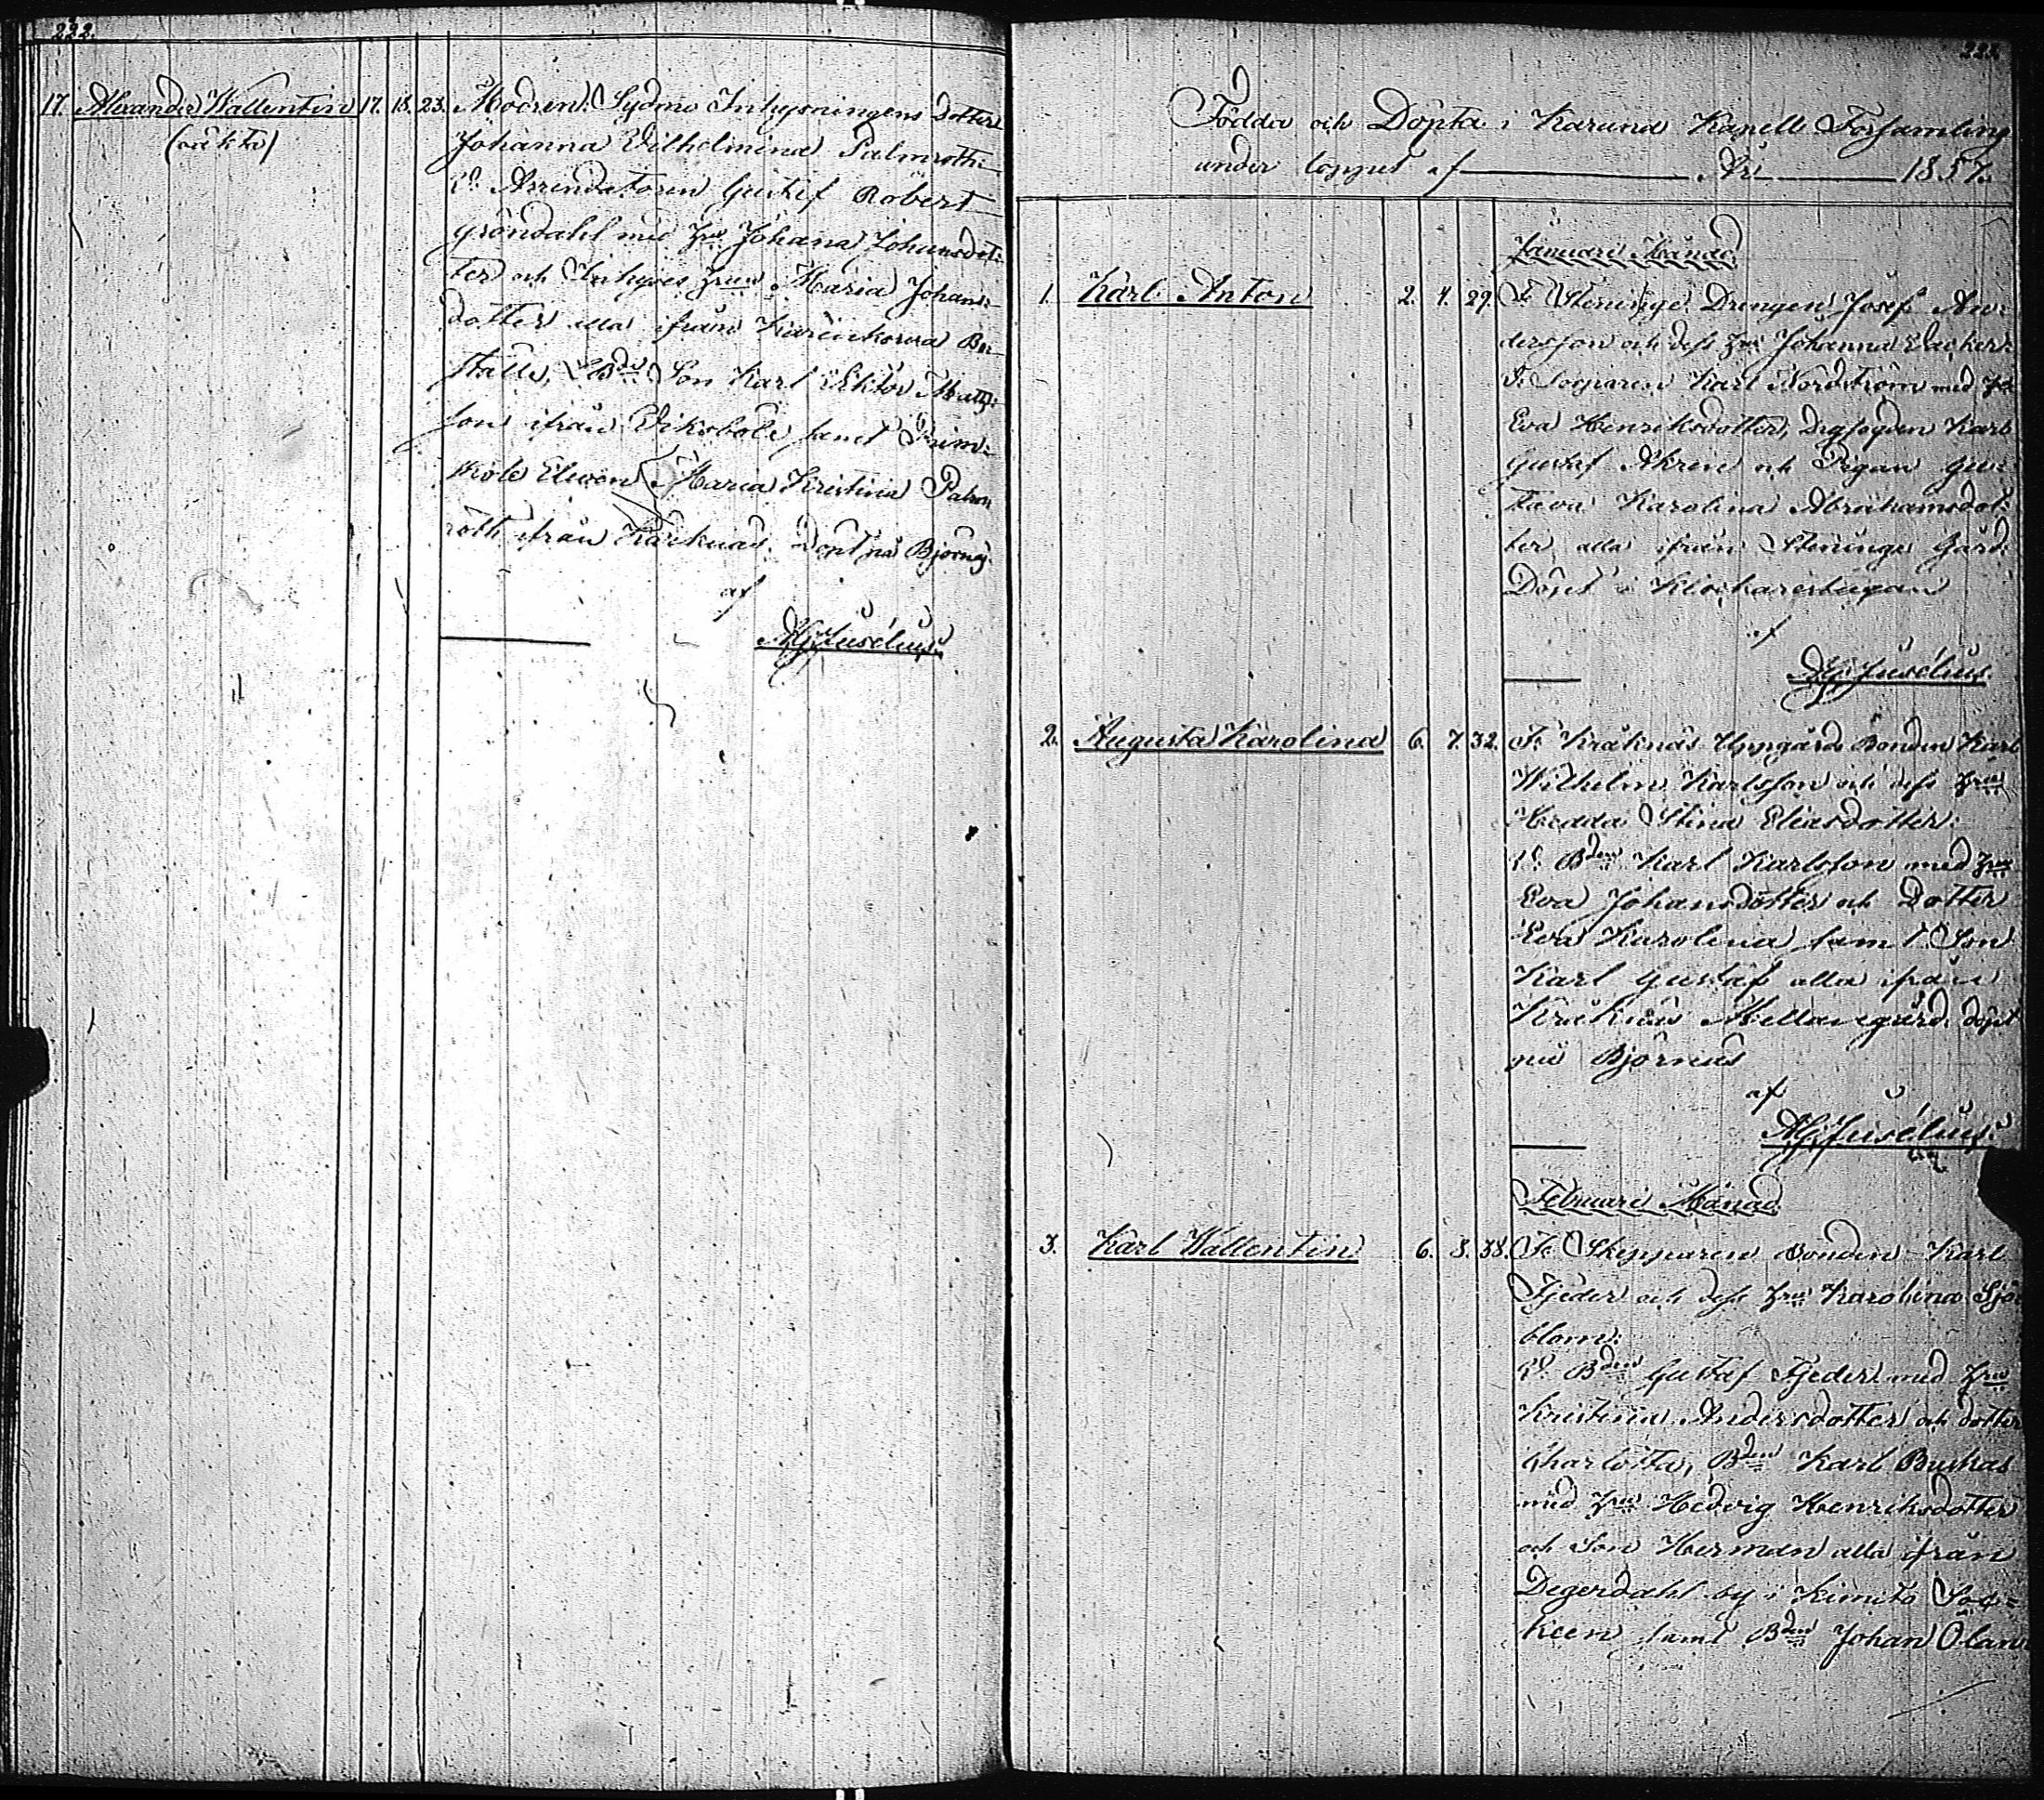 222.
17. Alexander Wallentin 17. 18. 23. Modren: Sydmo Inhysningens dotter
(oäkta)
Johanna Vilhelmina Palmroth:
V. Arrendatoren Gustaf Robert
Gröndahl med Hru Johana Johansdot:
ter och Inhyses Hrun Maria Johans:
dotter alla ifrån
ställe, Bdn Son Karl Viktor Matts:
son ifrån Vikobole samt
Maria Kristina Palm
roth ifrån Döpt på Björnäs
af
AGJusélius.
223.
Födda och Döpta i Karuna Kapell Församling
under loppet af År 1857.
Januari Månad
1. Karl Anton 2. 4. 29. F. Steninge Drengen Josef An:
dersson och dess Hru Johanna Vacker:
F. Karl Nordström med Hru
Eva Henriksdotter, Karl
Gustaf Åkren och Pigan Gus:
tava Karolina Abrahamsdot:
ter alla ifrån Steninge Gård.
Döpt i Klockarestugan
af
AGJusélius.
2. Augusta Karolina 6. 7. 32. F. Kräknäs Uppgård Bonden Karl
Wilhelm Karlsson och dess Hru
Hedda Stina Eliasdotter:
V. Bden Karl Karlsson med Hru
Eva Johansdotter och Dotter
Eva Karolina samt Son
Karl Gustaf alla ifrån
Kräknäs Mellangård. döpt
på Björnäs
af
AGJusélius.
Februari Månad.
3. Karl Wallentin 6. 8. 38. F. Skepparen Bonden Karl
Fjeder och dess Hru Karolina Sjö
blom:
V. Bden Gustaf Fjeder med Hru
Kristina Andersdotter och dotter
Charlotta, Bden Karl Buskas
med Hru Hedvig Henriksdotter
och Son Herman alla ifrån
Degerdahl by i Kimito Soc=
ken samt Bden Johan Ölan